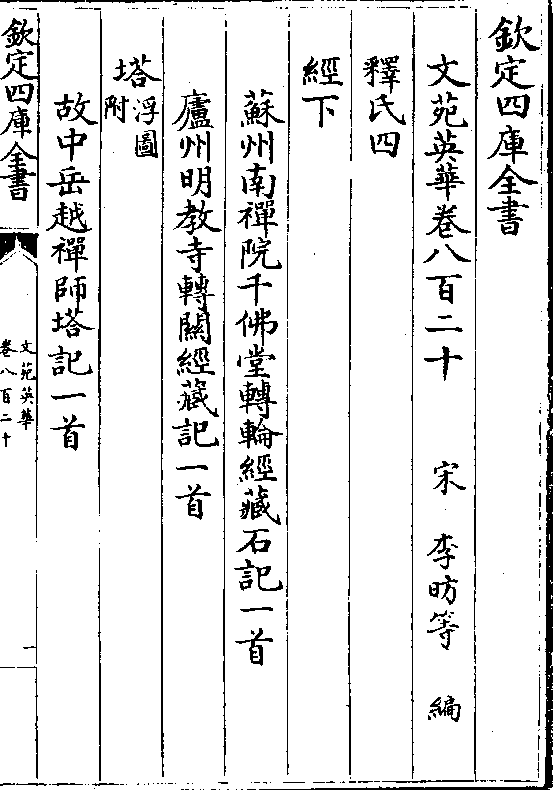 欽定四庫全書
文苑英華卷八百二十 宋 李昉等 編
釋氏四
經下
蘇州南禪院千佛堂轉輪經藏石記一首
廬州明教寺轉關經藏記一首
塔浮圖附
故中岳越禪師塔記一首
欽定四庫全書
文苑英華
卷八百二十
一